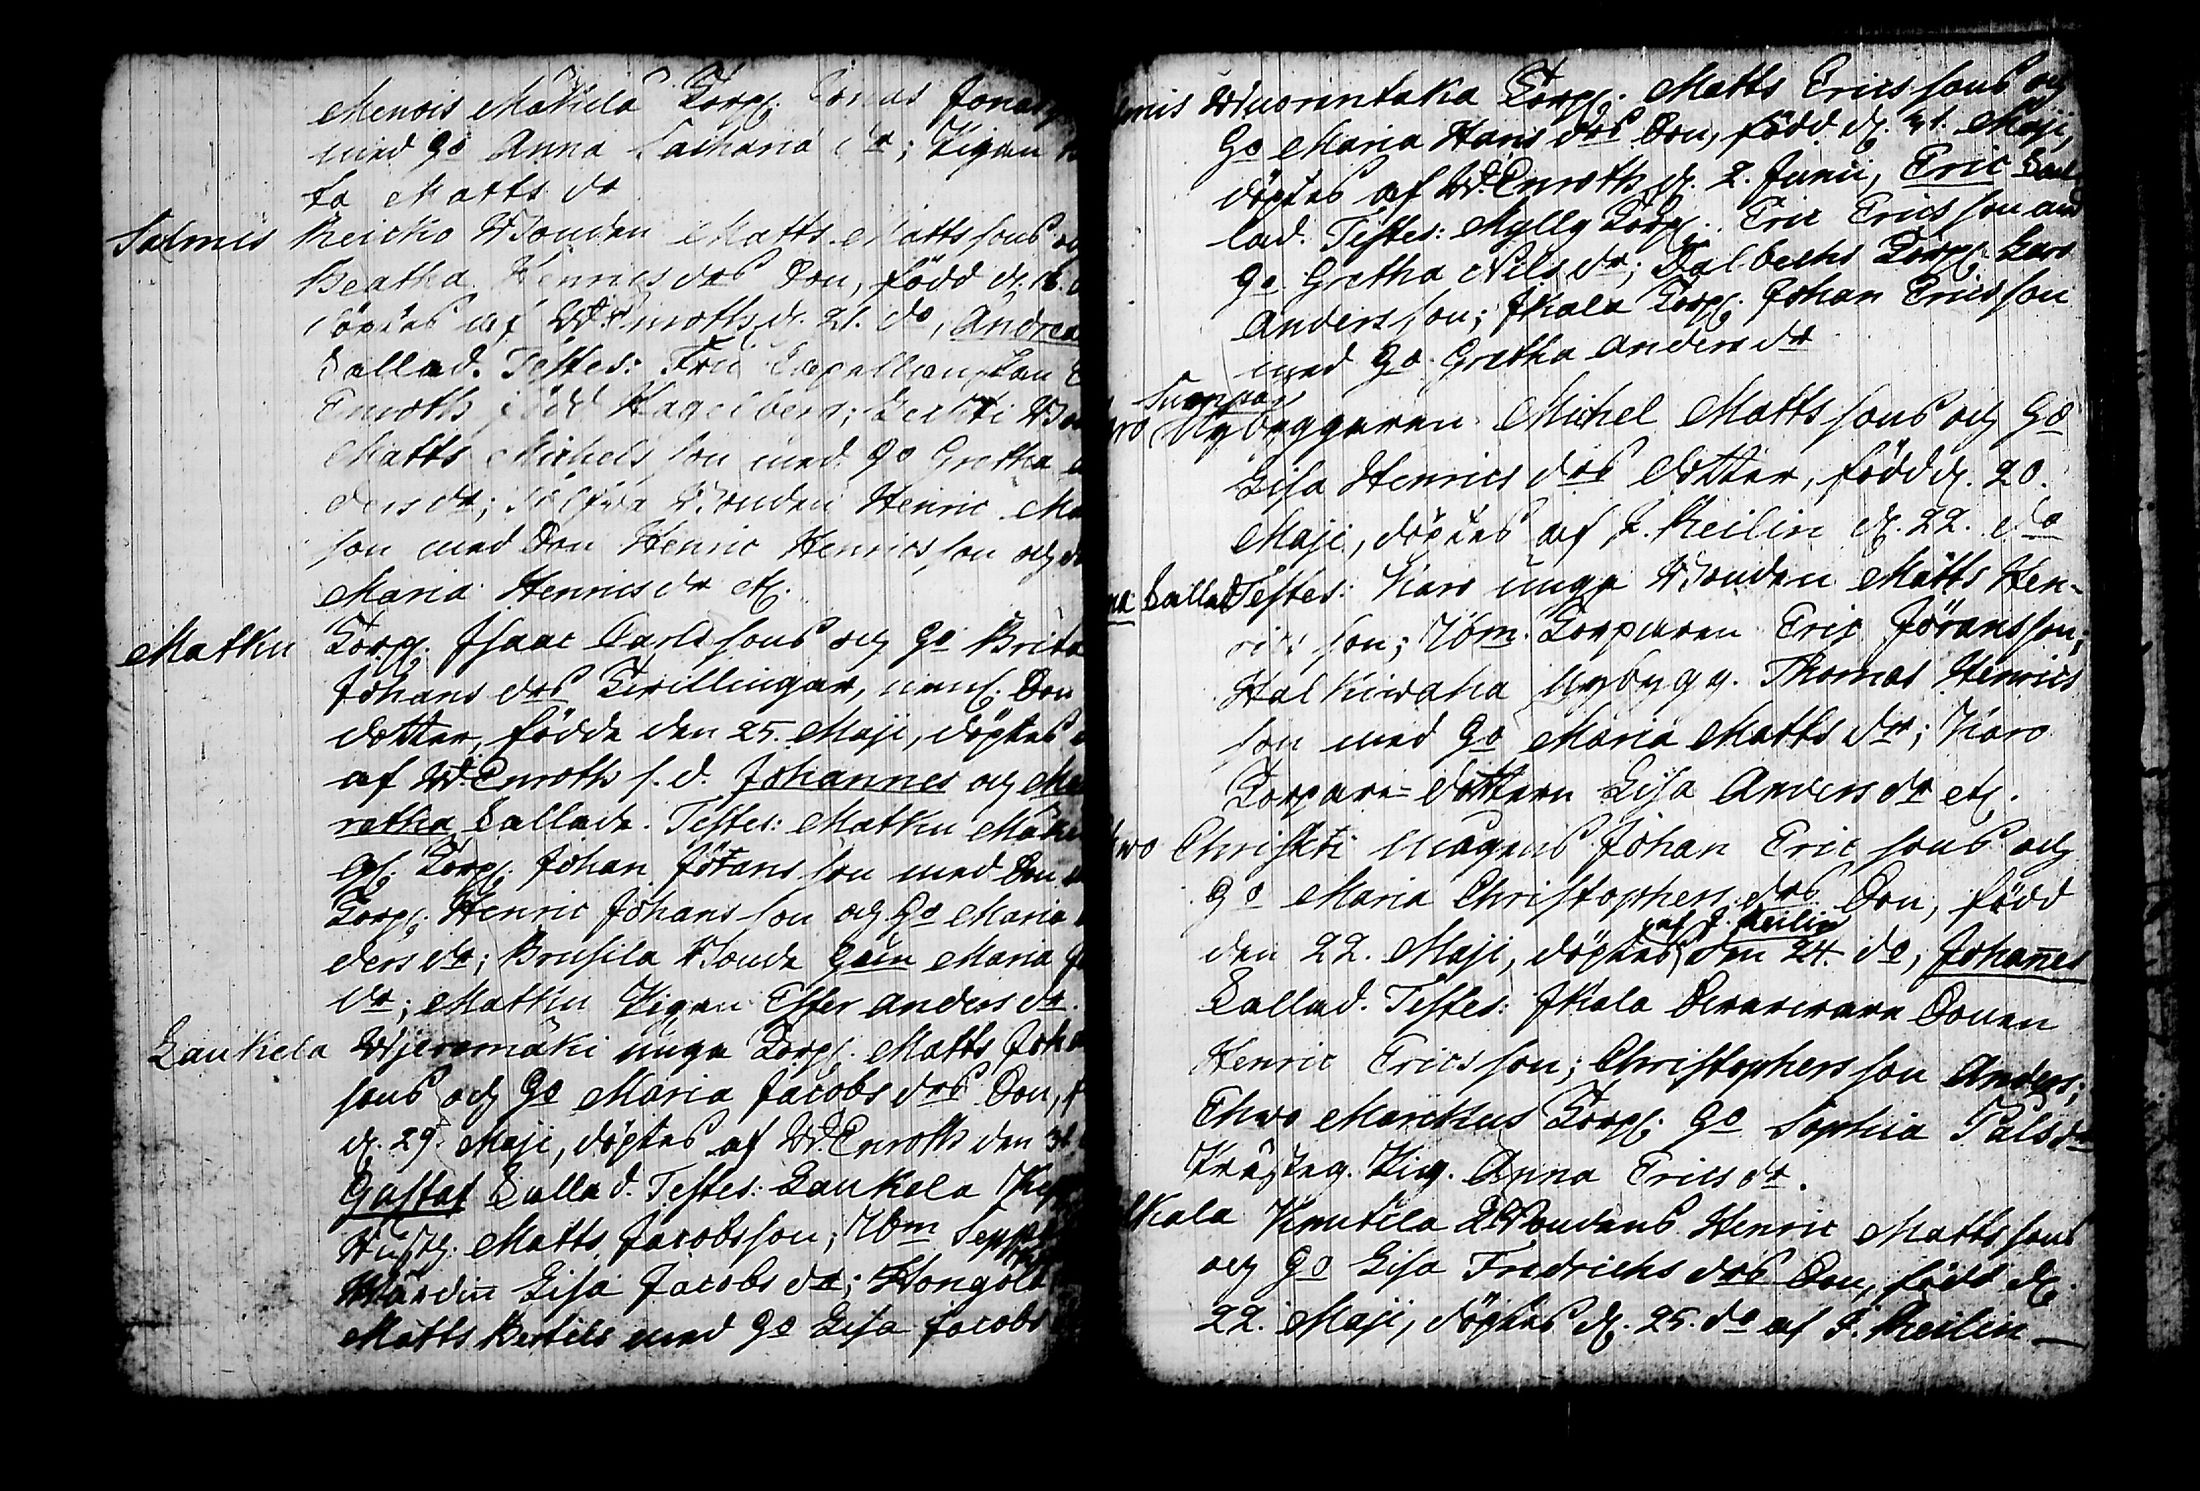 Menois Mäkilä Torp. Jonas Jonas
med Ho Anna Zacharia dr; Pigan
ta Matts dr
Salmis Reicko Bonden Matts Mattssons och
Beatha Henrics drs Son, född d. 16.
döptes af W. Enroth d. 21. do, Andreas
kallad. Testes: Fru Capellanskan
Enroth född Hagelberg; Bonden
Matts Michelsson med Ho Gretha
ders dr; Bonden Henric Ma
son med Son Henric Henricsson och
Maria Henrics dr etc.
Matku Torp. Isaac Carlssons och Ho Brita
Johans drs Tvillingar, neml. Son
dotter, födde den 25. Maji, döptes
af W. Enroth s. d. Johannes och Ma
retha kallade. Testes: Matku Mäki
Torp. Johan Jöransson med Son
Torp. Henric Johansson och Ho Maria
ders dr; Brusila Bonde Maria
dr; Matku Pigan Ester Anders dr.
Laukela Wjeremäki unga Torp. Matts Joh
sons och Ho Maria Jacobs drs Son, f
d. 29. Maji, döptes af W. Enroth den 31.
Gustaf kallad. Testes: Laukela
Matts Jacobsson; Ibm Seppä
Wärdin Lisa Jacobs dr; Hongola
Matts Bertils med Ho Lisa Jacobs
mis Wuorentaka Torp. Matts Ericssons och
Ho Maria Hans drs Son, född d. 31. Maji,
döptes af W. Enroth d. 2. Junii, Eric kal
lad. Testes: Mylly Torp. Eric Ericsson
Ho Gretha Nils dr; Dalbacks Torp. Lars
Andersson; Ikala Torp. Johan Ericsson
med Ho Gretha Anders dr
Suonpää
ro Nybyggaren Michel Mattssons och Ho
Lisa Henrics drs dotter, född d. 20.
Maji, döptes af J. Reilin d. 22. do
na kallad Testes: Karo unga Bonden Matts Hen-
rics son; Ibm. Torparen Eric Jöransson;
Halkiwaha Nybygg. Thomas Henrics
son med Ho Maria Matts dr; Karo
Torpare-dottern Lisa Anders dr etc.
wo Christi mågens Johan Ericsons och
Ho Maria Christophers drs Son, född
af J. Reilin
den 22. Maji, döptes den 24. do, Johannes
kallad. Testes: Ikala Sonen
Henric Ericsson; Christophersson Anders;
Torp. Ho Sophia Påls dr
Pig. Anna Erics dr.
kala Knutila Bondens Henric Mattssons
och Ho Lisa Fredrichs drs Son, född d.
22. Maji, döptes d. 25. do af J. Reilin